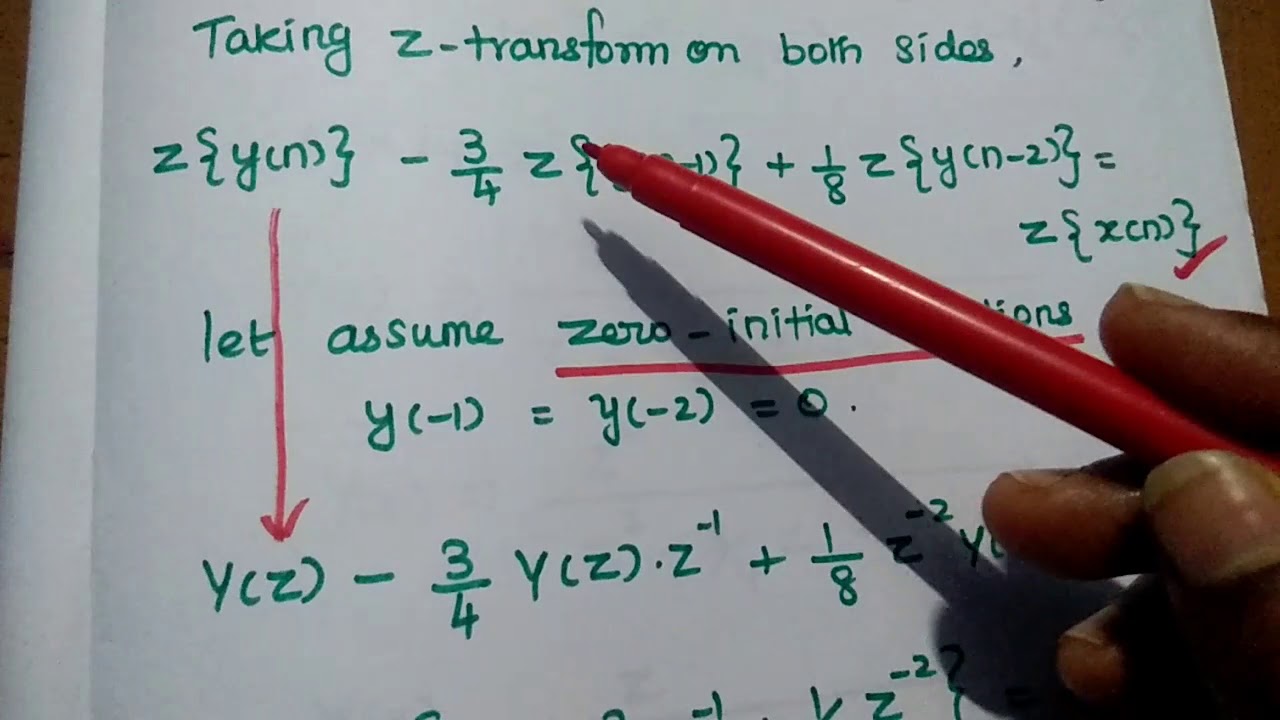 Taking z-transform on both sides,
z{y(n)} - 3/4 z{ -1)} + 1/8 z{y(n-2)} =
z{x(n)}
let assume zero-initial
y(-1) = y(-2) = 0.
Y(z) - 3/4 Y(z).z⁻¹ + 1/8 z⁻² Y(